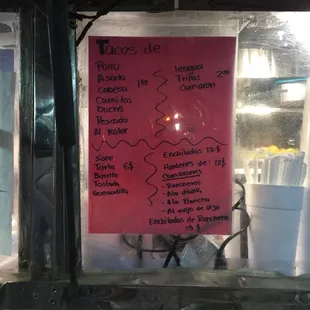 Tacos de:
Pollo
Asada
Cabesa
Carnitas
Buche
Pescado
Al Pastor
1.50
Lengua
Tripas
Camaron
2.00
Sope
Torta
Burrito
Tostada
Quesadilla
6$
Enchiladas 12$
Mariscos de: 12$
Camarones
- Rancheros
- Ala diabla
- Ala Plancha
- Al mojo de Ajo
Enchiladas de Rancheros
15 $